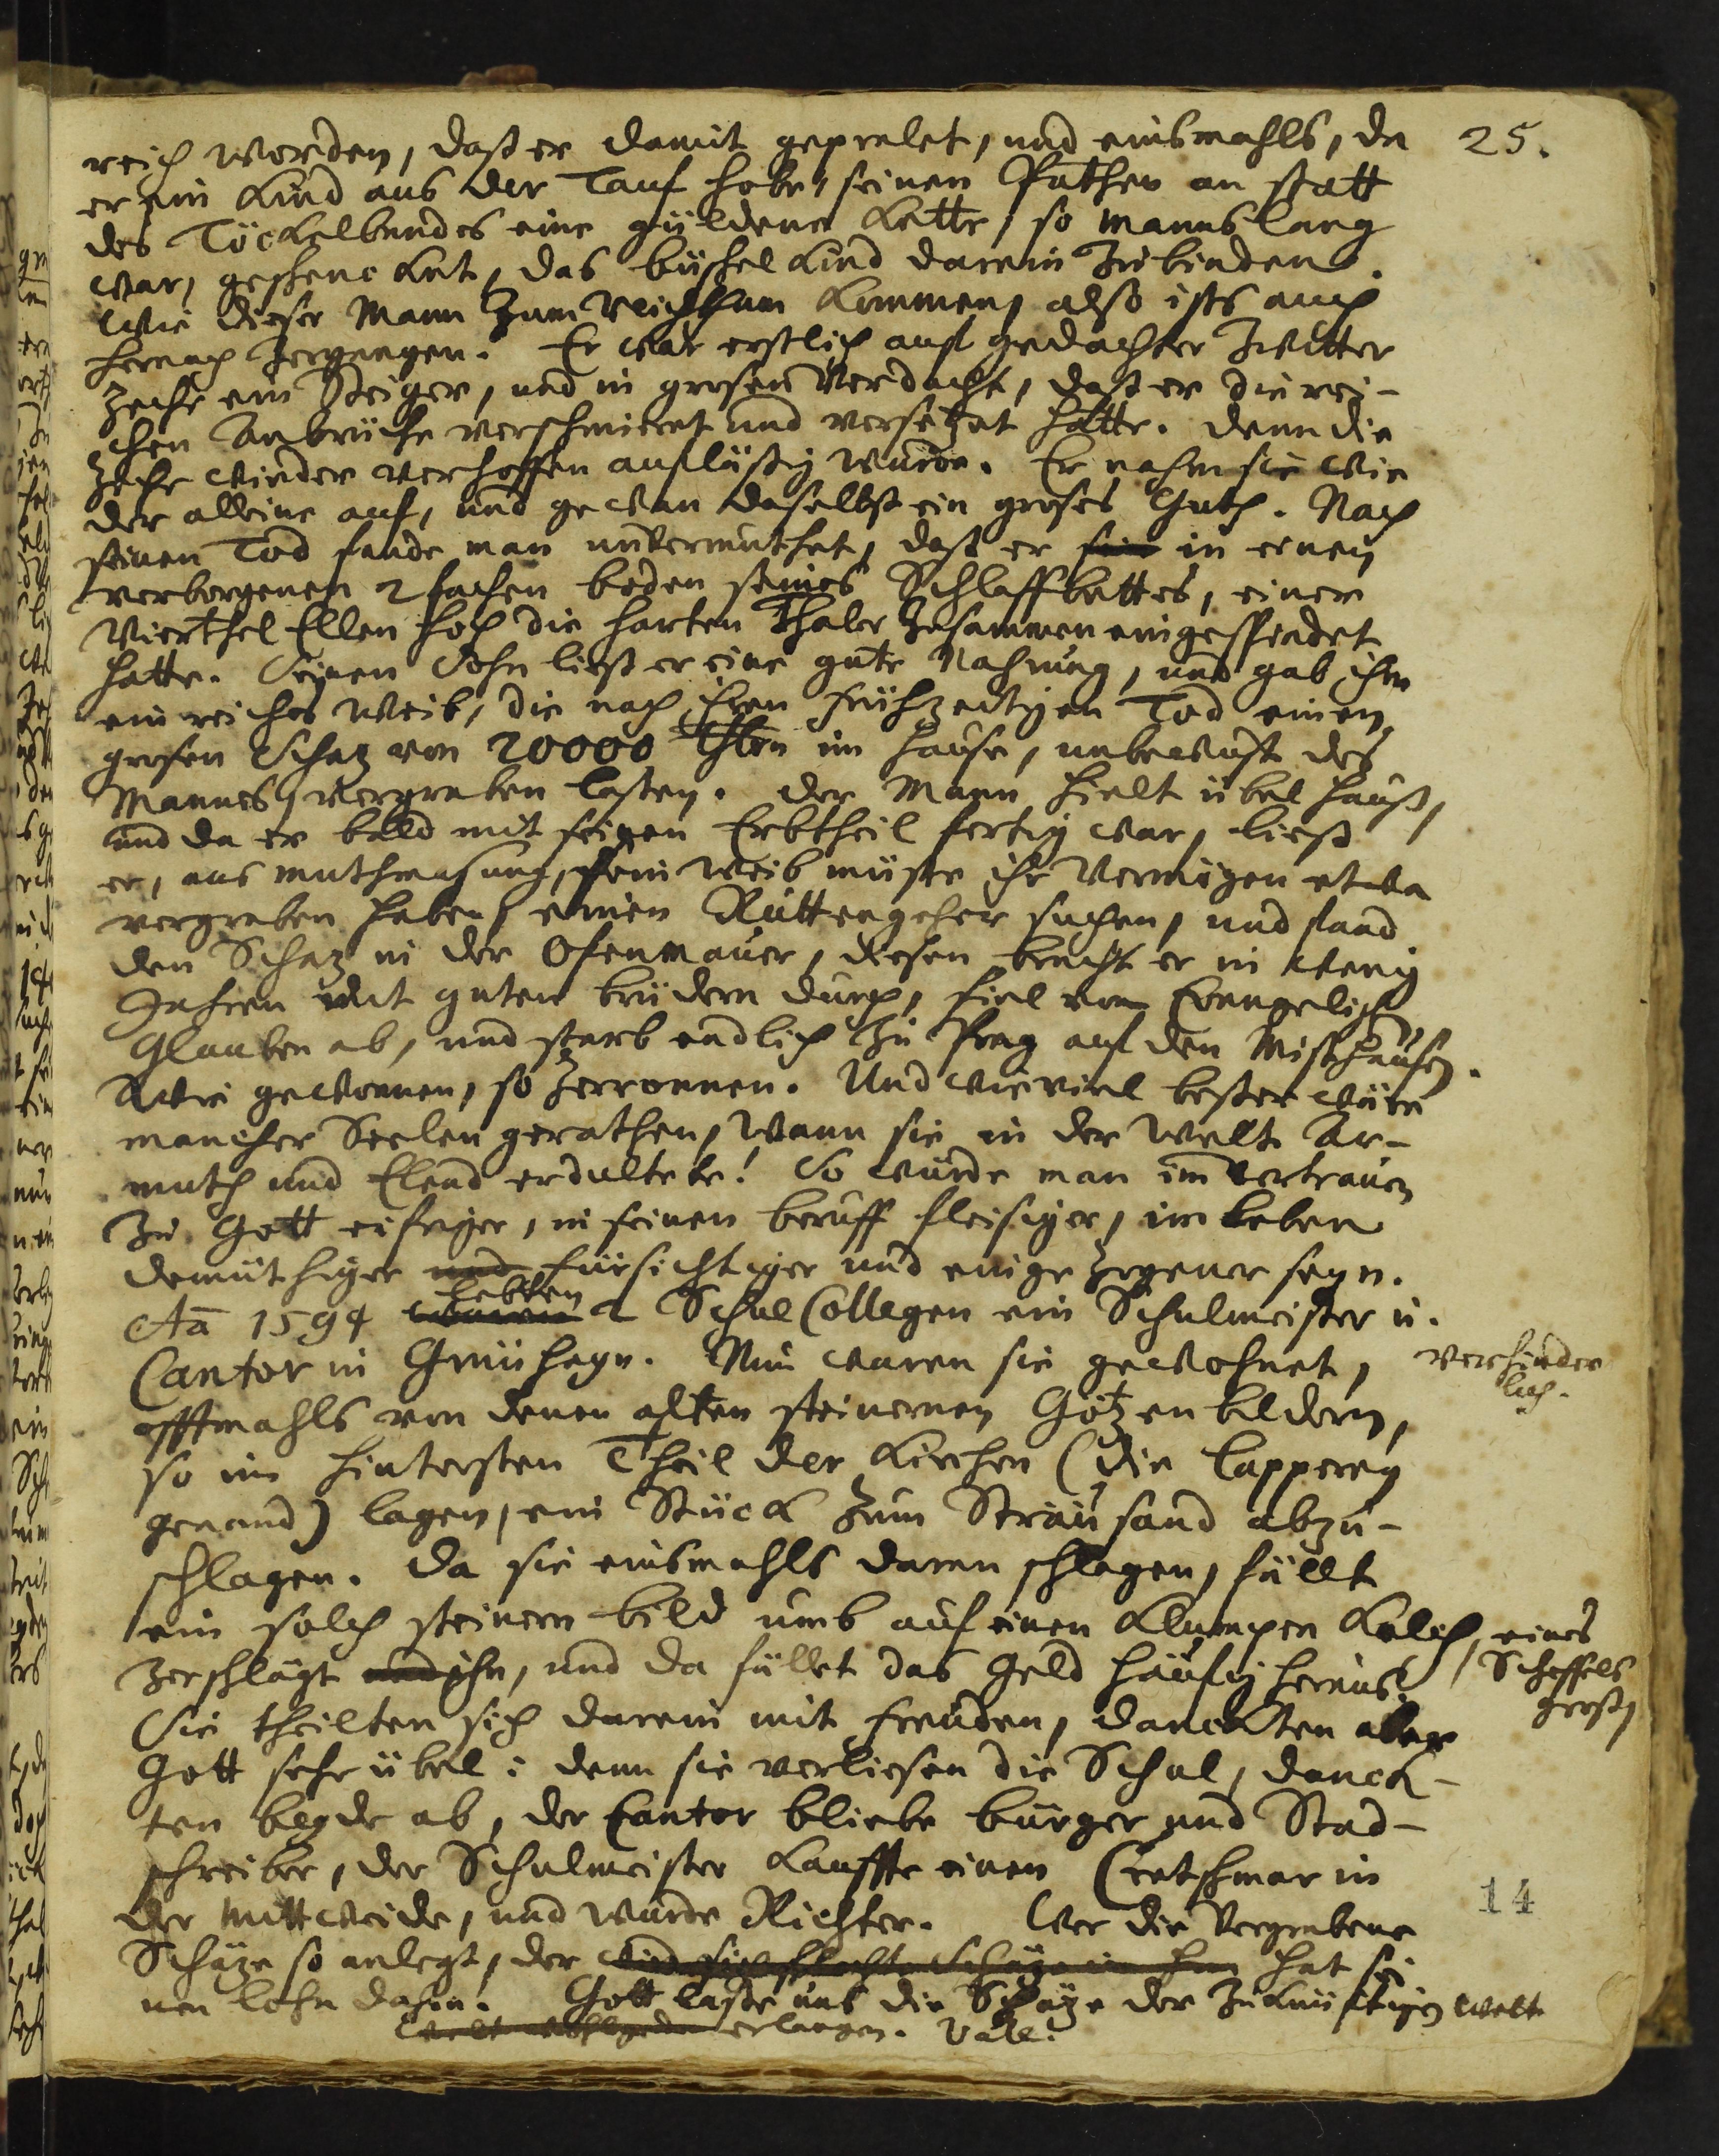 25.
reich worden, daß er damit gepralet, und einsmahls, da
er ein Kind aus der Tauf hobe, seinen Pathen an statt
des Töckelbandes eine güldene Kette, so Manns lang
war, geschencket, das büschel Kind darein zu binden.
Wie dieser Mann zum Reichthum kommen, also ists auch
hernach zergangen. Er war erstlich auf gedachter Zwitter
Zeche ein Steiger, und in grosen Verdacht, daß er die rei-
chen Anbrüche verschmieret und versetzet hatte. denn die
Zeche wieder verhoffen auflässig wurde. Er nahm sie wie
der alleine auf, und gewan daselbst ein groses Guth. Nach
seinen Tod fande man unvermuthet, daß er sein in einen
verborgenen 2fachen boden seines Schlaffbettes, einer
Vierthel Ellen hoch die harten Thaler zusammen
hatte. Seinen Sohn ließ er eine gute Nahrung, und gab ihm
ein reiches Weib, die nach ihren frühzeitigen Tod einen
grosen Schaz von 20000 Thlrn im Hause, unbewust des
Mannes, vergraben lassen. der Mann hielt übel Hauß,
und da er bald mit seinen Erbtheil fertig war, ließ
er, aus muthmasung, sein Weib müste ihr Vermögen etwa
vergraben haben, einen Ruttengeher suchen, und fand
den Schaz in der Ofenmauer, diesen bracht er in wenig
Jahren mit guten brüdern durch, fiel vom Evangelisch
Glauben ab, und starb endlich zu Prag auf den Misthaufen.
Wie gewonnen, so zerronnen. Und wieviel besser wäre
mancher Seelen gerathen, wann sie in der Welt Ar-
muth und Elend erdultete! So würde man im Vertrauen
zu Gott eifriger, in seinen beruff fleisiger, im Leben
demüthiger und fürsichtiger und eingezogener seyn.
lebten
Aō 1594 waren 2 Schul Collegen ein Schulmeister u.
Cantor in Grünhayn. Nun waren sie gewohnet,
verhinder
lich.
offtmahls von denen alten steinernen Götzenbildern,
so im hintersten Theil der Kirchen (die Capperey
genand) lagen, ein Stück zum Streusand abzu-
schlagen. Da sie einsmahls daran schlagen, fällt
ein solch steinern bild umb auf einen Klumpen Kalch, eines
Scheffels
groß,
zerschlägt und ihn, und da fället das Geld häufig heraus.
Sie theilten sich darein mit Freuden, danckten aber
Gott sehr übel: denn sie verliesen die Schul, danck-
ten beyde ab, der Cantor bliebe bürger und Stad-
schreiber, der Schulmeister kauffte einen Cretschmar in
der Mittweide, und wurde Richter. Wer die Vergrabene
14
Schäze so anlegt, der hat sei
nen Lohn dahin. Gott lasse uns die Schäze der zukünftigen Welt
erlangen. Vale.